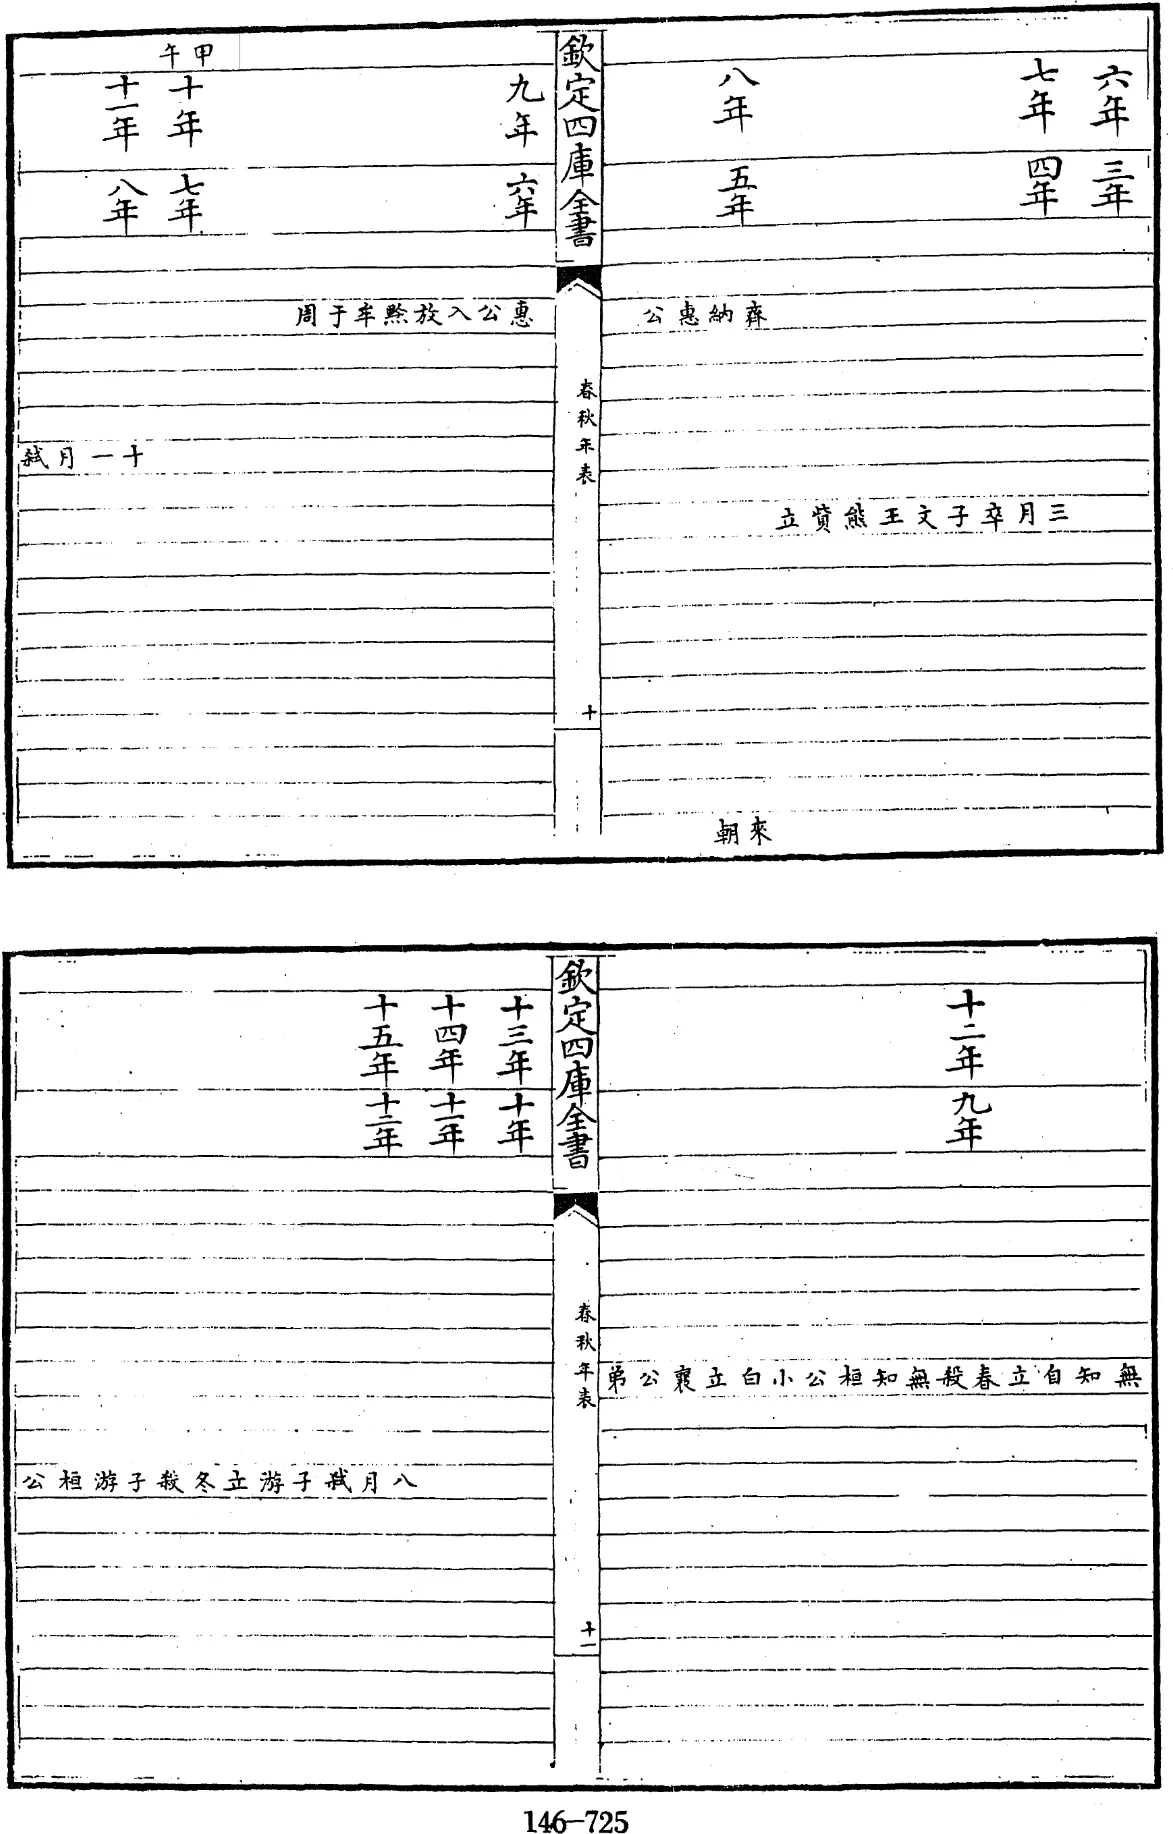 六年 三年
七年 四年
三月卒子文王熊貲立
八年 五年
齊納惠公
來朝
欽定四庫全書
春秋年表
十
九年 六年
惠公入放黔牟于周
甲午
十年 七年
十一年 八年
十一月弒
十二年 九年
無知自立春殺無知桓公小白立襄公弟
欽定四庫全書
春秋年表
十一
十三年 十年
十四年 十一年
十五年 十二年
八月弒子游立冬殺子游桓公
146-725